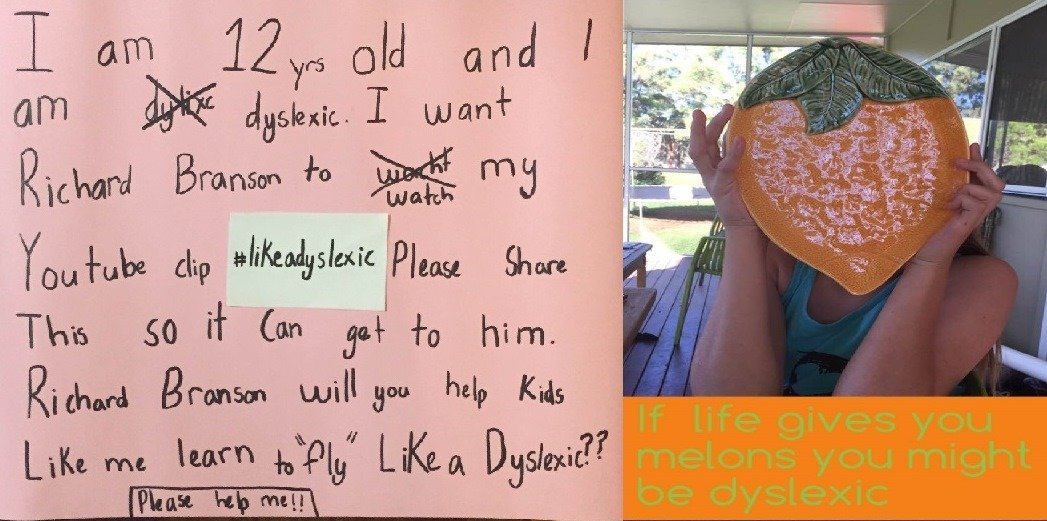 I am 12 yrs old and I
am dyslexic. I want
Richard Branson to watch my
Youtube clip #likeadyslexic Please Share
This so it Can get to him.
Richard Branson will you help Kids
Like me learn to "fly" Like a Dyslexic??
Please help me!!
If life gives you
melons you might
be dyslexic